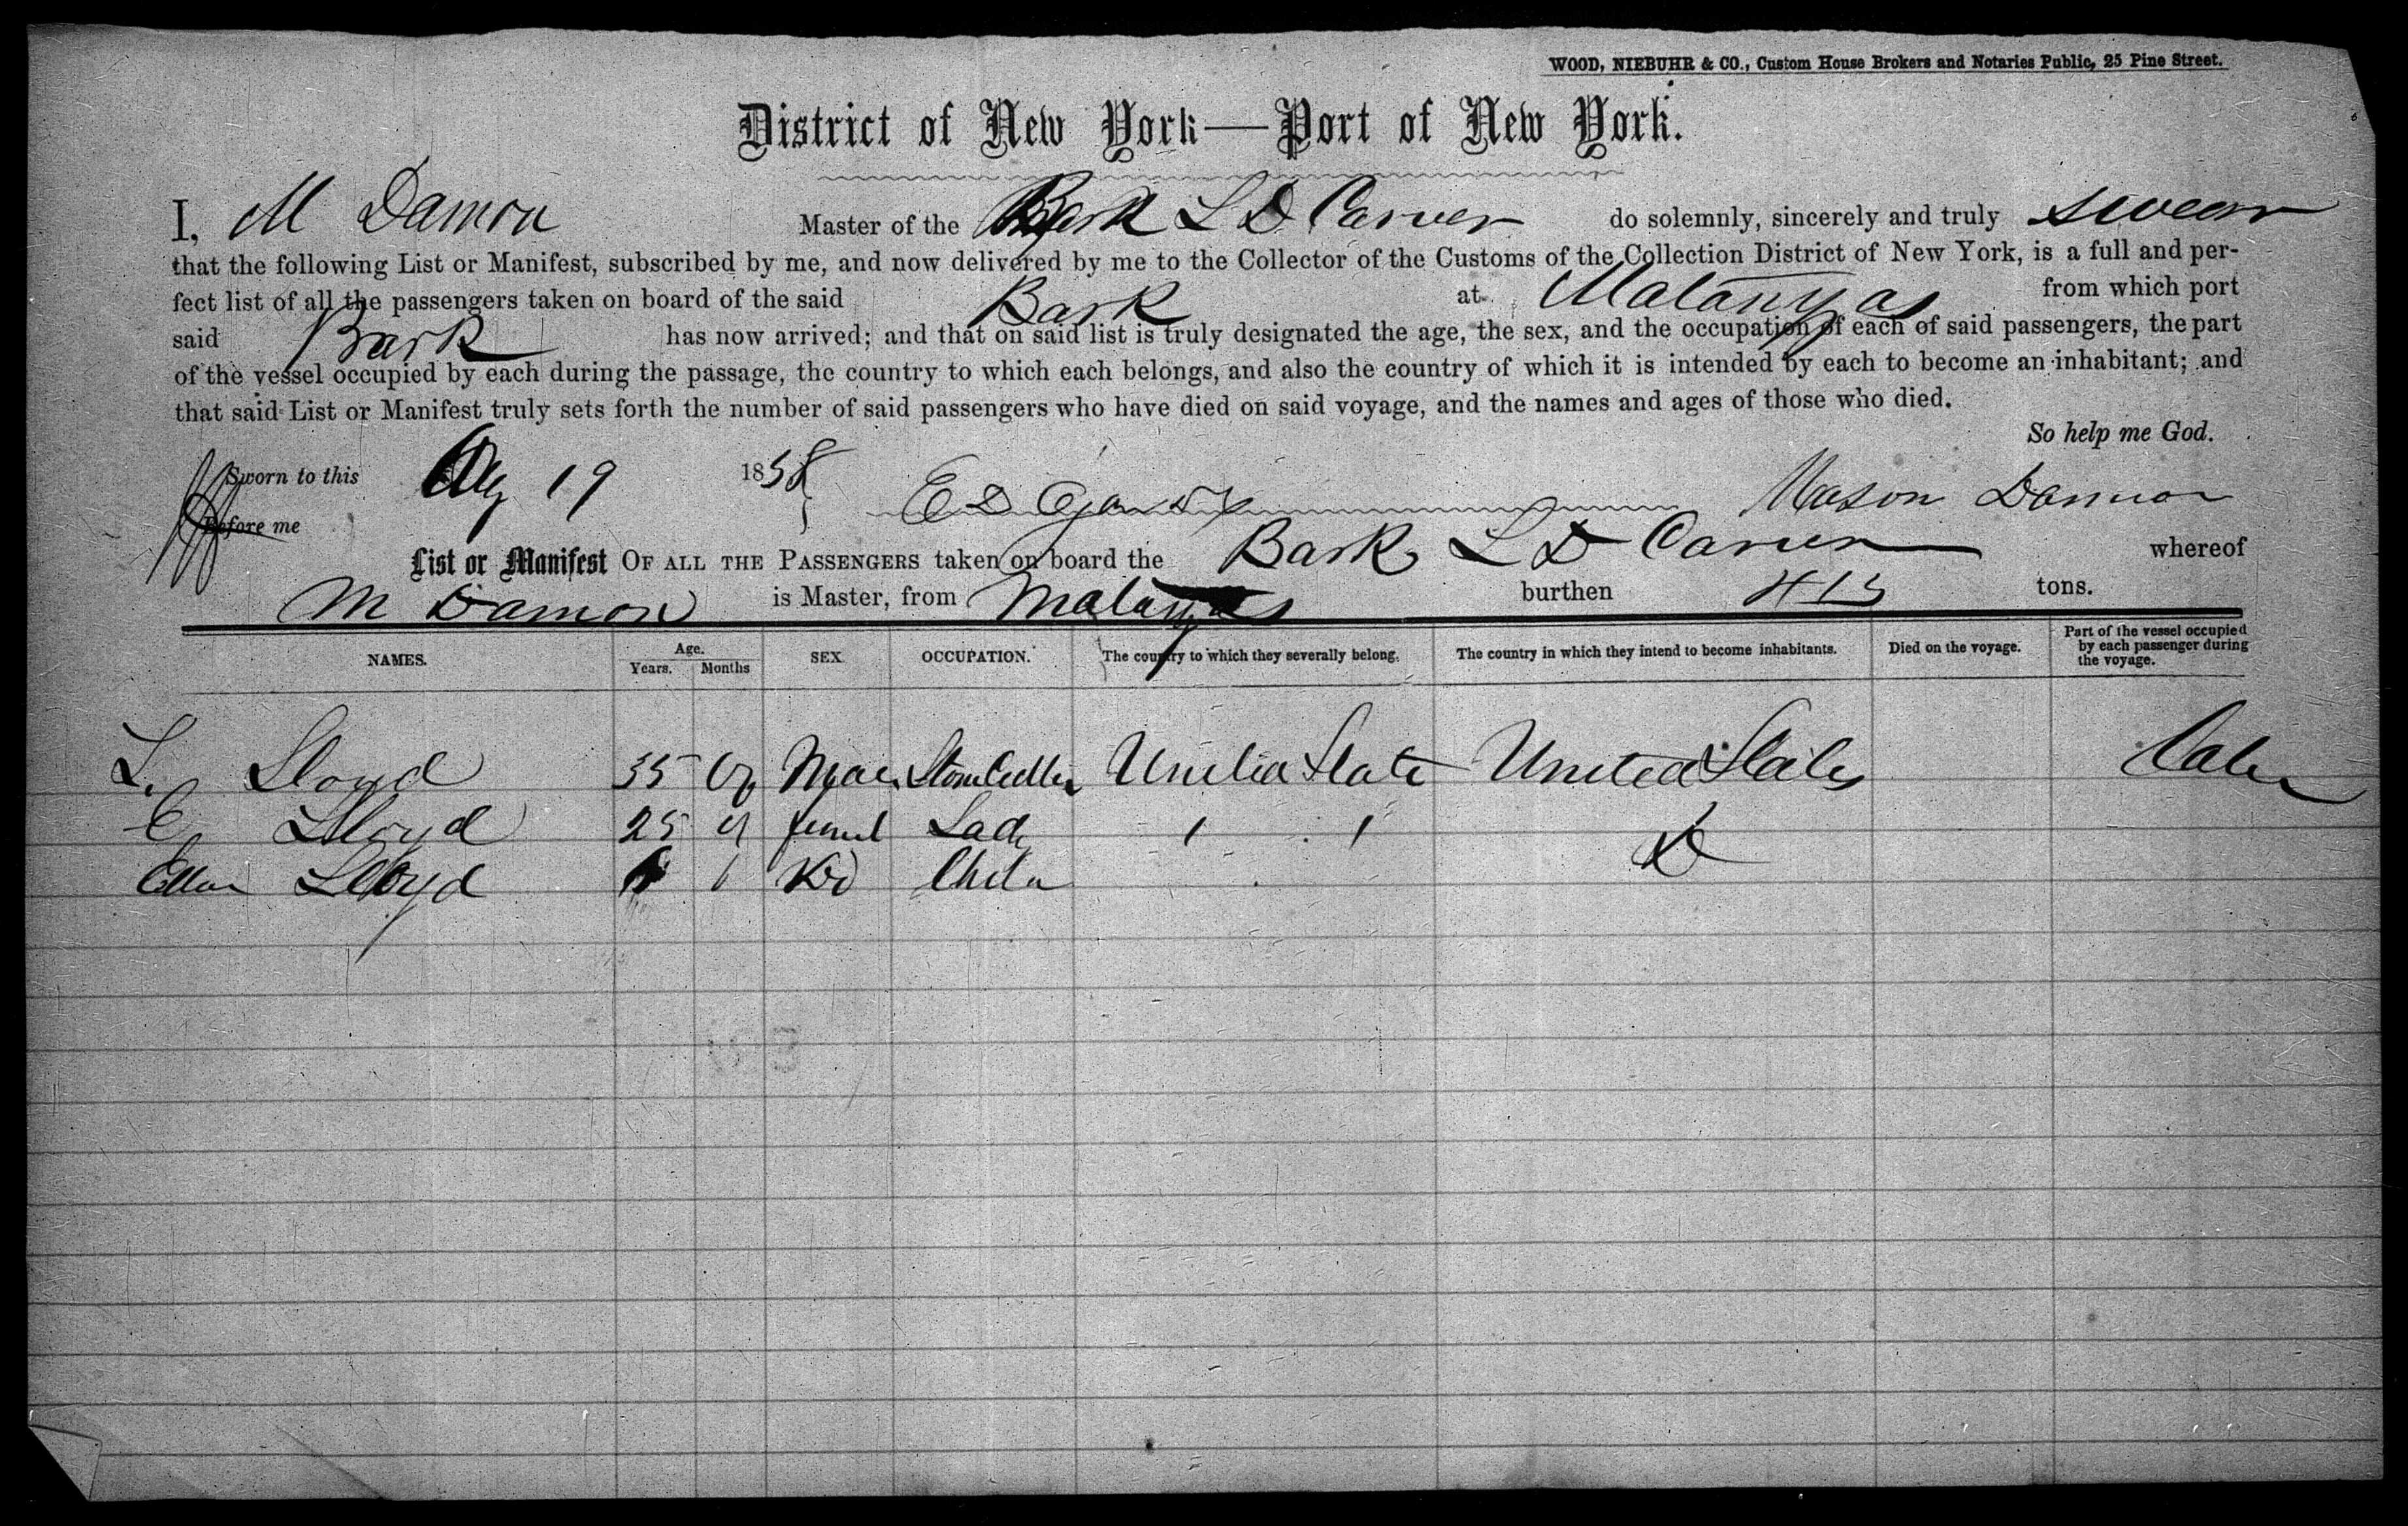 WOOD, NIEBUHR & CO., Custom House Brokers and Notaries Public, 25 Pine Street.
District of New York—Port of New York.
I, M Damon Master of the Bark L D Carver do solemnly, sincerely and truly swear
that the following List or Manifest, subscribed by me, and now delivered by me to the Collector of the Customs of the Collection District of New York, is a full and per-
fect list of all the passengers taken on board of the said Bark at Matanzas from which port
said Bark has now arrived; and that on said list is truly designated the age, the sex, and the occupation of each of said passengers, the part
of the vessel occupied by each during the passage, the country to which each belongs, and also the country of which it is intended by each to become an inhabitant; and
that said List or Manifest truly sets forth the number of said passengers who have died on said voyage, and the names and ages of those who died.
So help me God.
Sworn to this 19 1858
Before me Mason Damon
List or Manifest OF ALL THE PASSENGERS taken on board the Bark L D Carver whereof
M Damon is Master, from Matanzas burthen tons.
NAMES. Age. Years. Months SEX. OCCUPATION. The country to which they severally belong. The country in which they intend to become inhabitants. Died on the voyage. Part of the vessel occupied by each passenger during the voyage.
L. Lloyd 35 United State United States
E Lloyd 25 Lady
Lloyd